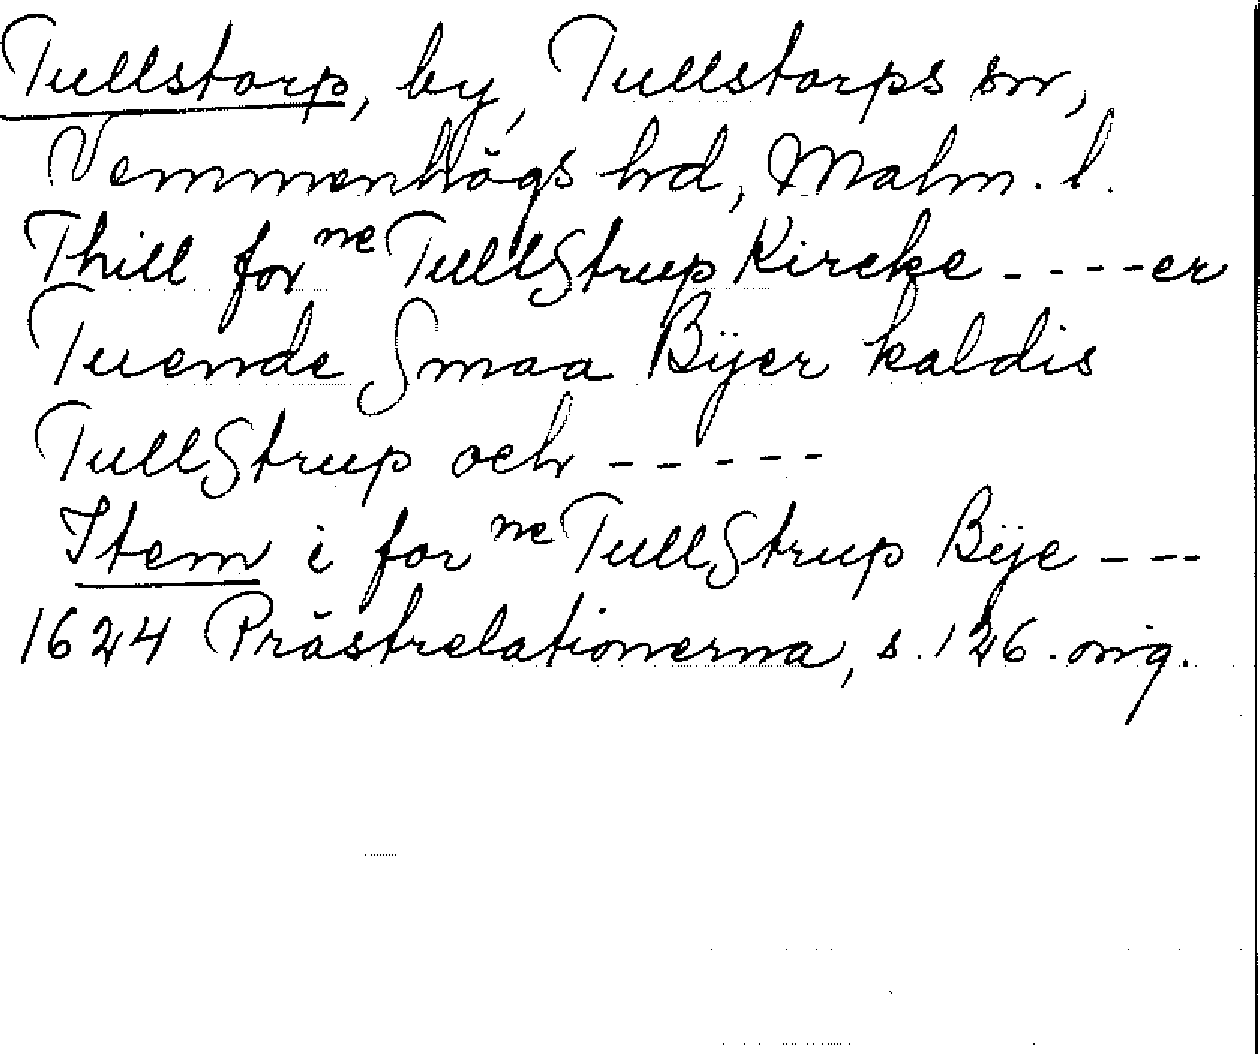 Tullstorp, by, Tullstorps sn,
Vemmenhögs hd, Malm. l.
Thill for ne TullStrup Kircke - - - - er
Tuende Smaa Bÿer kaldis
TullStrup och - - - - -
Item i for ne TullStrup Bÿe - - -
1624 Prästrelationerna, s. 126. orig.